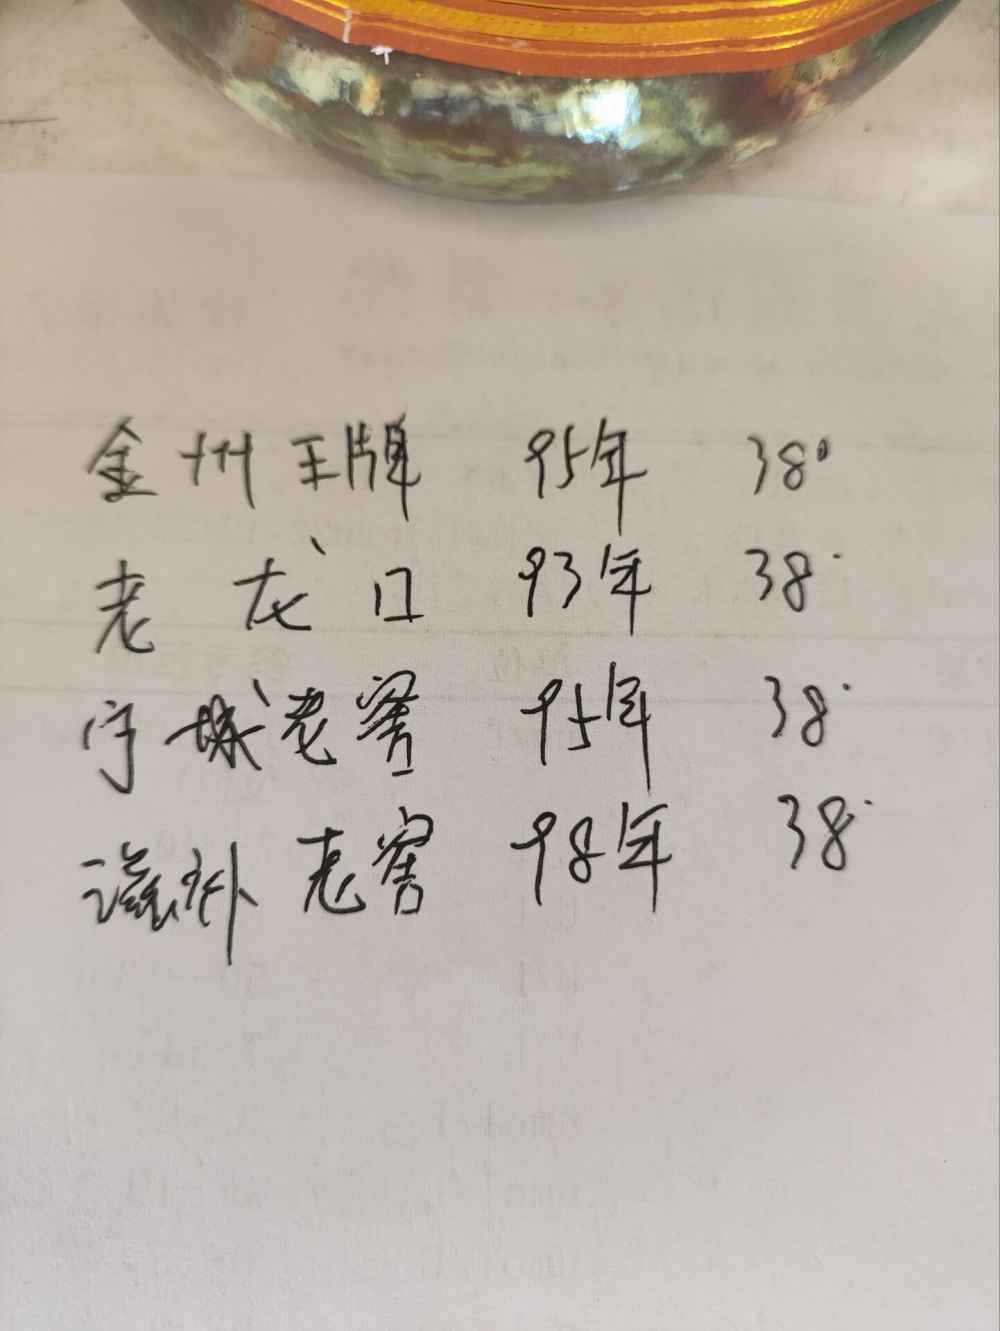 金州王牌 95年 38°
老龙口 93年 38°
宁城老窖 95年 38°
滋补老窖 98年 38°